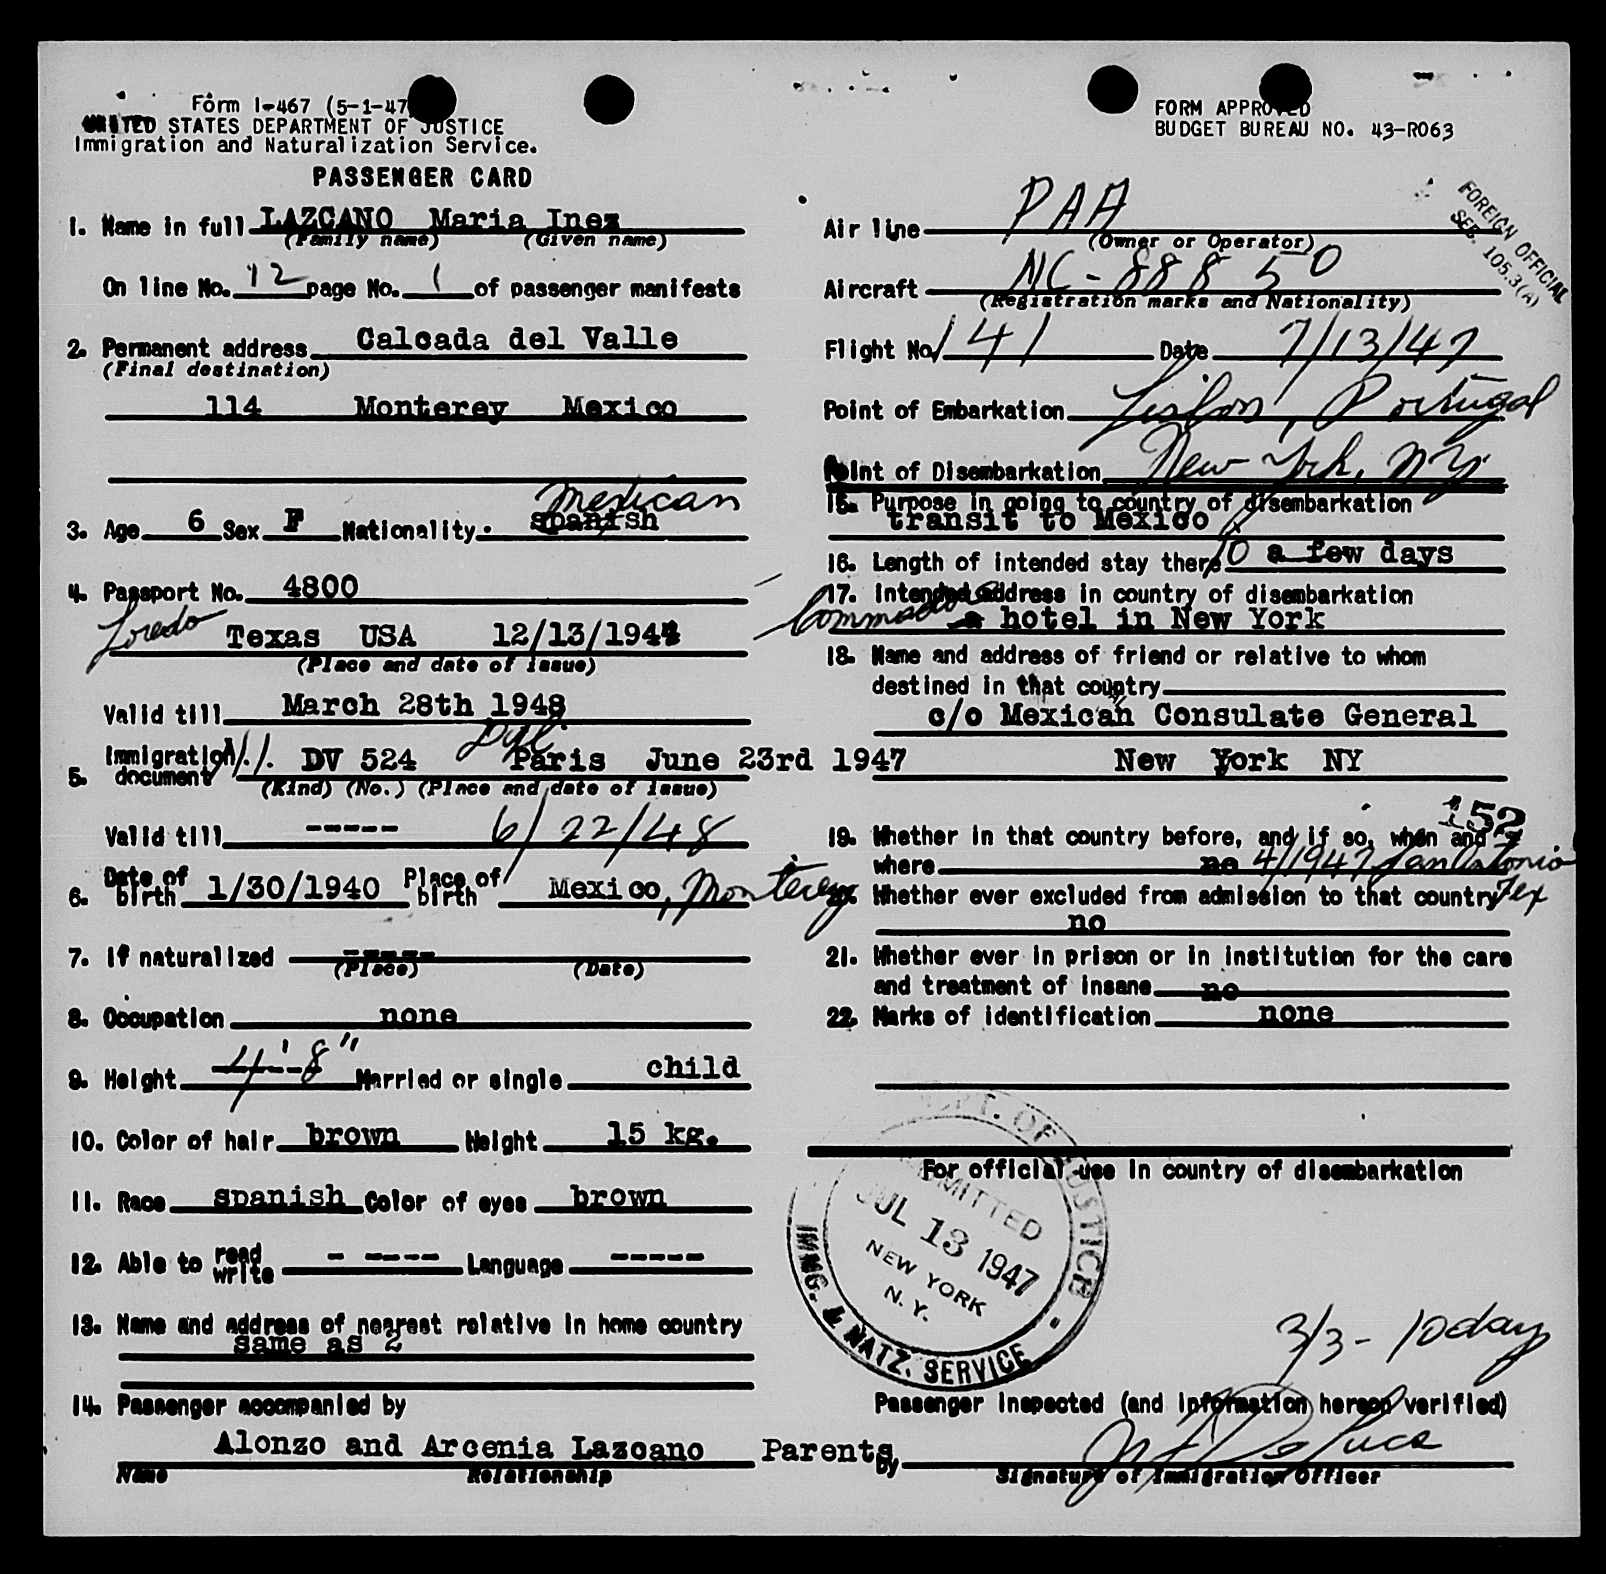 Form I-467 (5-1-47
UNITED STATES DEPARTMENT OF JUSTICE
Immigration and Naturalization Service.
PASSENGER CARD
1. Name in full LAZCANO Maria Inez
(Family name) (Given name)
On line No. 12 page No. 1 of passenger manifests
2. Permanent address Calcada del Valle
(Final destination)
114 Monterey Mexico
Mexican
3. Age 6 Sex F Nationality. spanish
4. Passport No. 4800
Loredo Texas USA 12/13/1944
(Place and date of issue)
Valid till March 28th 1948
5. Immigration document DV 524 Dpl. Paris June 23rd 1947
(Kind) (No.) (Place and date of issue)
Valid till ----- 6/22/48
6. Date of birth 1/30/1940 Place of birth Mexico, Monterey
7. If naturalized -----
(Place) (Date)
8. Occupation none
9. Height 4'-8" Married or single child
10. Color of hair brown Weight 15 kg.
11. Race spanish Color of eyes brown
12. Able to read write - ---- Language -----
13. Name and address of nearest relative in home country
same as 2
14. Passenger accompanied by
Alonzo and Arcenia Lazcano Parents
Name Relationship
FORM APPROVED
BUDGET BUREAU NO. 43-R063
FOREIGN OFFICIAL
SEC. 105.3(A)
Air line PAA
(Owner or Operator)
Aircraft NC-88850
(Registration marks and Nationality)
Flight No. 141 Date 7/13/47
Point of Embarkation Lisbon, Portugal
Point of Disembarkation New York, NY.
15. Purpose in going to country of disembarkation
transit to Mexico
16. Length of intended stay there 10 a few days
17. Intended address in country of disembarkation
Commodore a hotel in New York
18. Name and address of friend or relative to whom
destined in that country
c/o Mexican Consulate General
New York NY
152
19. Whether in that country before, and if so, when and
where no 4/1947 San Antonio Tex
20. Whether ever excluded from admission to that country
no
21. Whether ever in prison or in institution for the care
and treatment of insane no
22. Marks of identification none
For official use in country of disembarkation
DEPT. OF JUSTICE
ADMITTED
JUL 13 1947
NEW YORK
N. Y.
IMMG. & NATZ. SERVICE
3/3- 10 day
Passenger inspected (and information hereon verified)
by
Signature of Immigration Officer